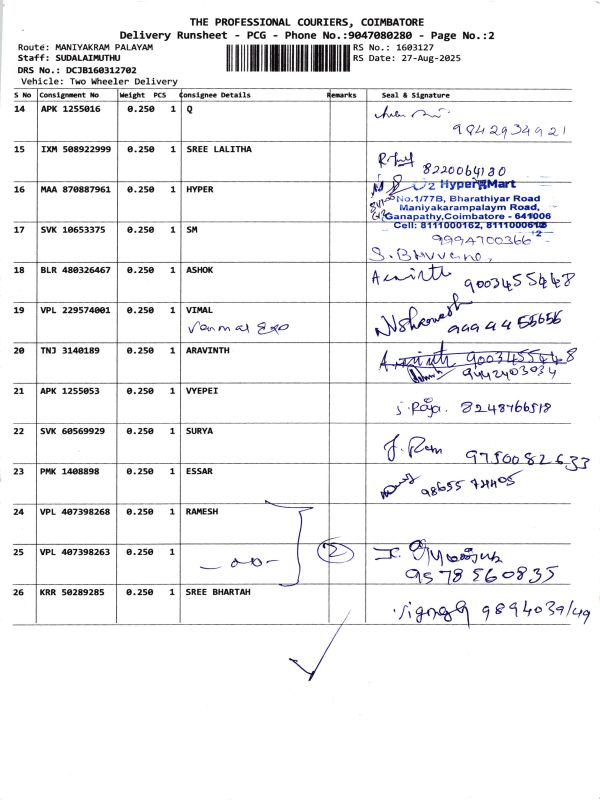 THE PROFESSIONAL COURIERS, COIMBATORE
Delivery Runsheet - PCG - Phone No.:9047080280 - Page No.:2
Route: MANIYAKRAM PALAYAM RS No.: 1603127
Staff: SUDALAIMUTHU RS Date: 27-Aug-2025
DRS No.: DCJB160312702
Vehicle: Two Wheeler Delivery
S No Consignment No Weight PCS Consignee Details Remarks Seal & Signature
14 APK 1255016 0.250 1 Q
9842934921
15 IXM 508922999 0.250 1 SREE LALITHA
8220064130
16 MAA 870887961 0.250 1 HYPER
U2 Hyper Mart
No.1/77B, Bharathiyar Road
Maniyakarampalaym Road,
Ganapathy,Coimbatore - 641006
Cell: 8111000162, 8111000612
17 SVK 10653375 0.250 1 SM
9994700366
18 BLR 480326467 0.250 1 ASHOK
9003455448
19 VPL 229574001 0.250 1 VIMAL
9994455656
20 TNJ 3140189 0.250 1 ARAVINTH
9003455448
9442403034
21 APK 1255053 0.250 1 VYEPEI
J. Raja. 8248766518
22 SVK 60569929 0.250 1 SURYA
J. Ram 9750082633
23 PMK 1408898 0.250 1 ESSAR
24 VPL 407398268 0.250 1 RAMESH
25 VPL 407398263 0.250 1
2
9578560835
26 KRR 50289285 0.250 1 SREE BHARTAH
9894039149